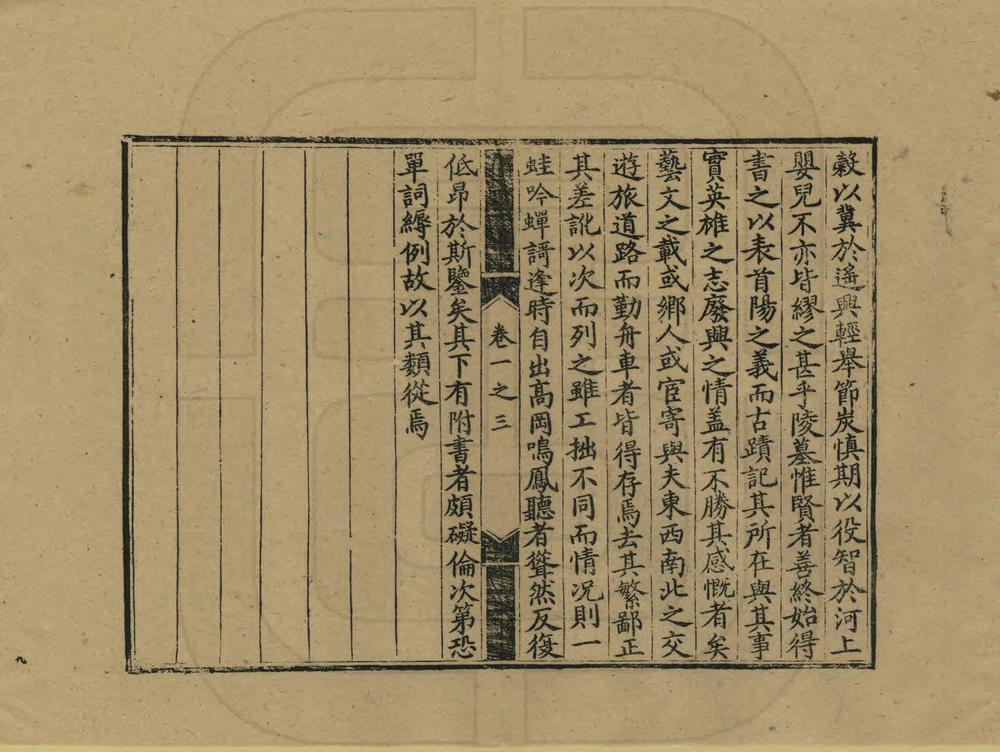 穀以冀於遙興輕舉節炭慎期以役智於河上
嬰兒不亦皆繆之甚乎陵墓惟賢者善終始得
書之以表首陽之義而古蹟記其所在與其事
實英雄之志廢興之情盖有不勝其感慨者矣
藝文之載或鄉人或宦寄與夫東西南北之交
遊旅道路而勤舟車者皆得存焉去其繁鄙正
其差訛以次而列之雖工拙不同而情况則一
蛙吟蟬謌逢時自出高岡鳴鳳聽者聳然反復
卷一之三
低昂於斯鑒矣其下有附書者頗礙倫次第恐
單詞縟例故以其類從焉